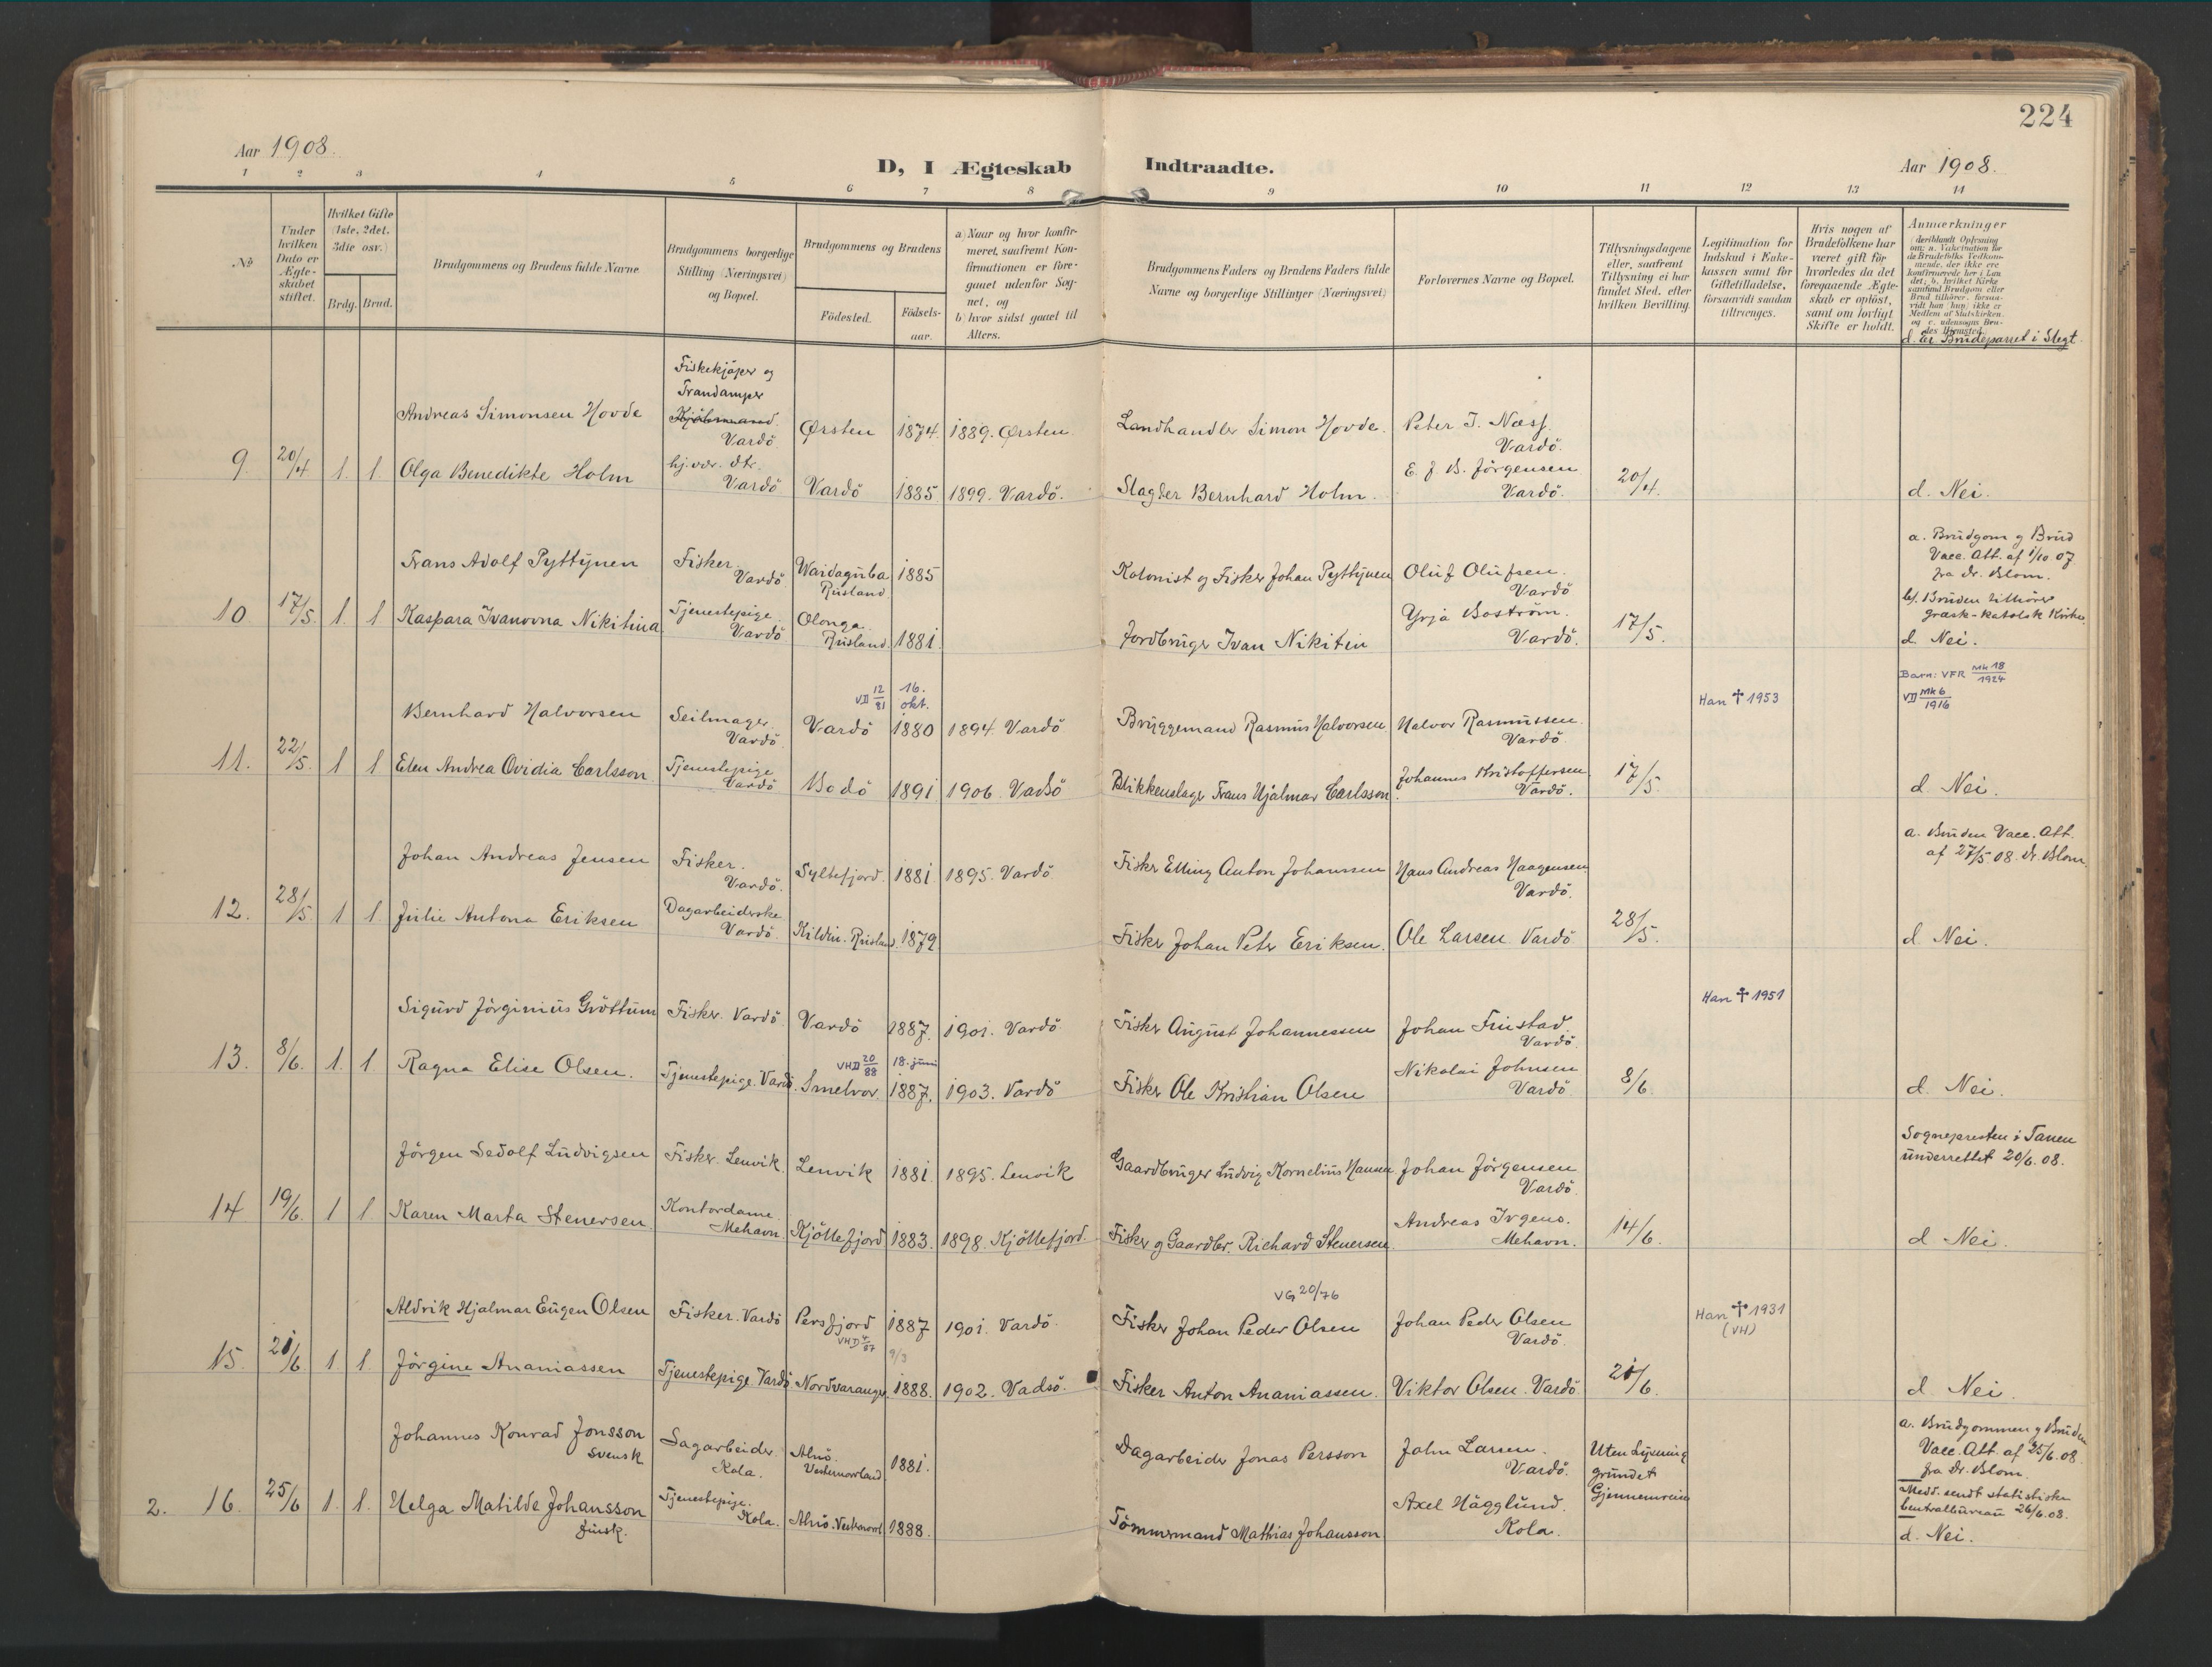 224
Aar 1908.
D, I Ægteskab Indtraadte.
Aar 1908.
1 2 3 4 5 6 7 8 9 10 11 12 13 14
No
Under hvilken Dato er Ægteskabet stiftet.
Hvilket Gifte (1ste, 2det, 3die osv.)
Brdg. Brud.
Brudgommens og Brudens fulde Navne
Brudgommens borgerlige Stilling (Næringsvei) og Bopæl.
Brudgommens og Brudens
Födested. Födselsaar.
a) Naar og hvor konfirmeret, saafremt Konfirmationen er foregaaet udenfor Sognet, og
b) hvor sidst gaaet til Alters.
Brudgommens Faders og Brudens Faders fulde Navne og borgerlige Stillinger (Næringsvei)
Forlovernes Navne og Bopæl.
Tillysningsdagene eller, saafremt Tillysning ei har fundet Sted, efter hvilken Bevilling.
Legitimation for Indskud i Enkekassen samt for Giftetilladelse, forsaavidt saadan tiltrænges.
Hvis nogen af Brudefolkene har været gift för hvorledes da det foregaaende Ægteskab er oplöst, samt om lovligt Skifte er holdt.
Anmærkninger
(deriblandt Oplysning om: a. Vakcination for de Brudefolks Vedkommende, der ikke ere konfirmerede her i Landet; b. hvilket Kirkesamfund Brudgom eller Brud tilhörer, forsaavidt han, hun ikke er Medlem af Statskirken, og c. udensogns Brudes Hjemsted.
d. Er Brudeparret i Slegt.
Fiskekjøper og
Trandamper
Kjøbmand
Andreas Simonsen Hovde Vardö Ørsten 1874. 1889. Ørsten. Landhandler Simon Hovde. Peter J. Næss. Vardö.
9 20/4 1. 1. Olga Benedikte Holm hj.vær. dtr. Vardö Vardö 1885 1899. Vardö. Slagter Bernhard Holm. E. J. B. Jörgensen Vardö. 20/4. d. Nei.
a. Brudgom og Brud
Vacc. Att. af 1/10 07
fra Dr. Blom.
Frans Adolf Pyttynen Fisker Vardö Waidaguba Rusland 1885 Kolonist og Fisker Johan Pyttynen Oluf Olufsen. Vardö
b/. Bruden tilhører
græsk-katolsk Kirke.
10 17/5. 1. 1 Kaspara Ivanovna Nikitina Tjenestepige Vardö Olonga Rusland. 1881. Jordbruger Ivan Nikitin Yrja Boström. Vardö. 17/5. d. Nei.
Barn: VFR Mk 18/1924
VD Mk 6/1916
VD 12/81 16. okt. Han † 1953
Bernhard Halvorsen Seilmager Vardö. Vardö 1880 1894. Vardö Bryggemand Rasmus Halvorsen Halvor Rasmussen. Vardö.
11. 22/5. 1 1 Elen Andrea Ovidia Carlsson Tjenestepige Vardö Bodö 1891 1906. Vadsö Blikkenslager Frans Hjalmar Carlsson. Johannes Kristoffersen Vardö. 17/5. d Nei.
a. Bruden Vacc. Att.
af 27/5 08. Dr. Blom.
Johan Andreas Jensen Fisker. Vardö. Syltefjord. 1881. 1895. Vardö Fisker Elling Anton Johannsen Hans Andreas Haagensen. Vardö.
12. 28/5. 1 1. Julie Antona Eriksen Dagarbeiderske Vardö. Kildin. Rusland. 1879 Fisker Johan Peter Eriksen. Ole Larsen. Vardö 28/5. d. Nei.
Han † 1951
Sigurd Jörginius Gröttum Fisker. Vardö Vardö 1887. 1901. Vardö Fisker August Johannessen Johan Frustad. Vardö.
VHD 20/88 18. juni
13. 8/6. 1. 1 Ragna Elise Olsen. Tjenestepige. Vardö. Smelror. 1887. 1903. Vardö Fisker Ole Kristian Olsen Nikolai Johnsen Vardö 8/6. d. Nei.
Sognepresten i Tanen
underrettet 20/6. 08.
Jörgen Sedolf Ludvigsen Fisker. Lenvik. Lenvik 1881. 1895. Lenvik Gaardbruger Ludvig Kornelius Hansen Johan Jörgensen Vardö.
14 19/6. 1 1 Karen Marta Stenersen. Kontordame. Mehavn. Kjöllefjord 1883. 1898. Kjöllefjord. Fisker og Gaardbr. Richard Stenersen. Andreas Irgens. Mehavn. 14/6. d Nei.
VG 20/76
Han † 1931
(VH)
Aldrik Hjalmar Eugen Olsen Fisker. Vardö Persfjord 1887 1901. Vardö. Fisker Johan Peder Olsen Johan Peder Olsen Vardö.
VHD 4/87 9/3
15. 21/6 1. 1. Jörgine Ananiassen Tjenestepige. Vardö Nordvaranger. 1888. 1902. Vadsö. Fisker Anton Ananiassen. Viktor Olsen. Vardö 21/6. d. Nei.
a. Brudgommen og Bruden
Vacc. Att. af 25/6. 08.
fra Dr. Blom.
Johannes Konrad Jonsson Svensk Sagarbeider. Kola. Alnö. Vesternorrland 1881. Dagarbeider Jonas Persson John Larsen. Vardö. Uten Lysning grundet Gjennemreise
Medd. sendt statistiske
Centralbureau 26/6. 08.
2. 16. 25/6 1. 1. Helga Matilde Johansson finsk. Tjenestepige. Kola. Alnö. Vesternorrl 1888. Tömmermand Mathias Johansson Axel Hägglund. Kola. d. Nei.